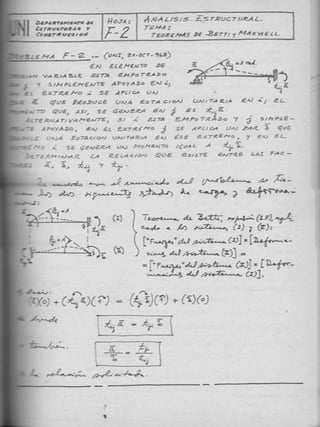 UNI
DEPARTAMENTO DE
ESTRUCTURAS Y
CONSTRUCCIÓN
HOJA:
F-2
ANALISIS ESTRUCTURAL.
TEMA:
TEOREMAS DE BETTI y MAXWELL
PROBLEMA F-2 -- (UNI, 21-OCT-968)
EN EL ELEMENTO DE
VARIABLE ESTA EMPOTRADO
Y SIMPLEMENTE APOYADO EN i,
EXTREMO i SE APLICA UN
QUE PRODUCE UNA ROTACION UNITARIA EN i, EL
QUE, ASI, SE GENERA EN j ES
ALTERNATIVAMENTE, SI i ESTA EMPOTRADO Y j SIMPLE-
APOYADO, EN EL EXTREMO j SE APLICA UN PAR b QUE
UNA ROTACION UNITARIA EN ESE EXTREMO, Y EN EL
i SE GENERA UN MOMENTO IGUAL A
DETERMINAR LA RELACION QUE EXISTE ENTRE LOS FAC-
a, b, tij Y tji.
de acuerdo con el enunciado del problema se tie-
los dos siguientes stados de cargas y deforma-
(I) Teorema de Betti, expresión (1F), apli-
cado a los sistemas (I) y (II):
["Fuerzas" del sistema (I)] x [Deforma-
(II) ciones del sistema (II)] =
= ["Fuerzas" del sistema (II)] x [Defor-
maciones del sistema (I)],
(a)(0) + (tij a)(1) = (tji b)(1) + (b)(0)
de donde tij a = tji b
también a/b = tji/tij
la relación solicitada.